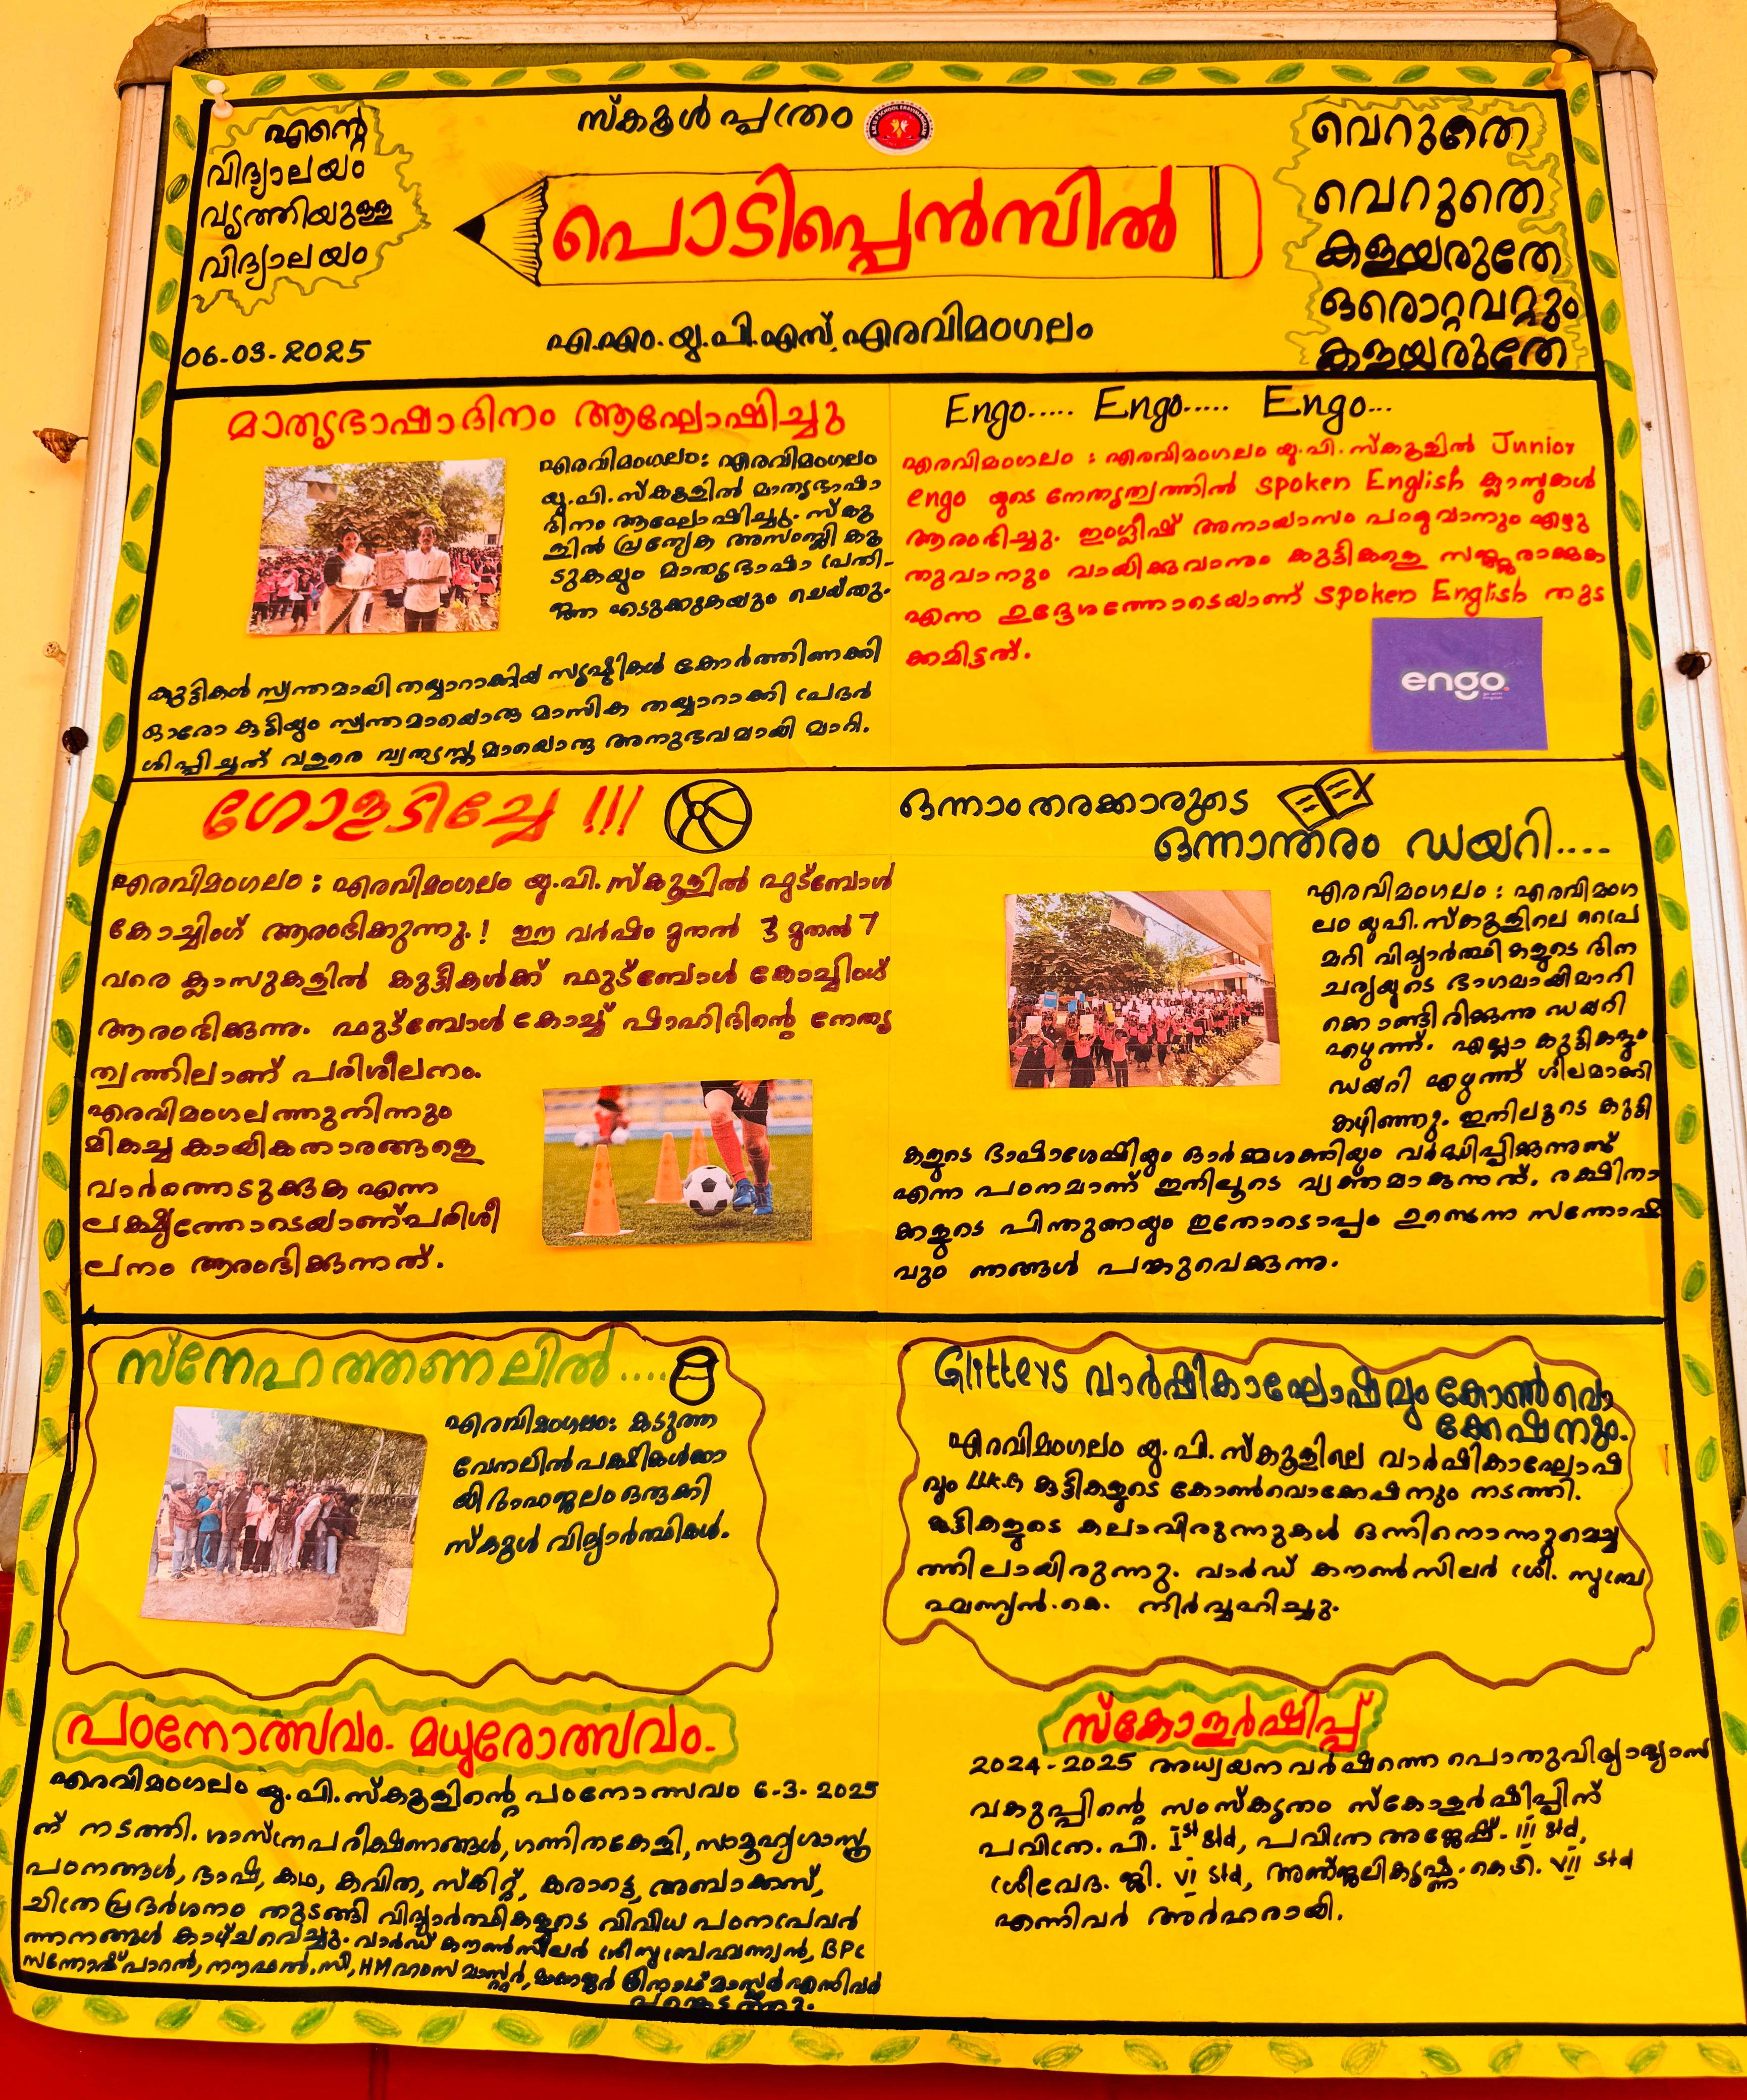 എന്റെ
വിദ്യാലയം
വൃത്തിയുള്ള
വിദ്യാലയം
06-03-2025
സ്കൂൾ പ്പത്രം
പൊടിപ്പെൻസിൽ
എ.എം.യു.പി.എസ്, എരവിമംഗലം
വെറുതെ
വെറുതെ
കളയരുതേ
ഒരൊറ്റവറ്റും
കളയരുതേ
മാതൃഭാഷാദിനം ആഘോഷിച്ചു
എരവിമംഗലം: എരവിമംഗലം
യു.പി.സ്കൂളിൽ മാതൃഭാഷാ
ദിനം ആഘോഷിച്ചു. സ്കൂ
ളിൽ പ്രത്യേക അസംബ്ലി കൂ
ടുകയും മാതൃഭാഷാ പ്രതി-
ജ്ഞ എടുക്കുകയും ചെയ്തു.
കുട്ടികൾ സ്വന്തമായി തയ്യാറാക്കിയ സൃഷ്ടികൾ കോർത്തിണക്കി
ഓരോ കുട്ടിയും സ്വന്തമായൊരു മാസിക തയ്യാറാക്കി പ്രദർ
ശിപ്പിച്ചത് വളരെ വ്യത്യസ്ത മായൊരു അനുഭവമായി മാറി.
Engo..... Engo..... Engo...
എരവിമംഗലം : എരവിമംഗലം യു.പി.സ്കൂളിൽ Junior
engo യുടെ നേതൃത്വത്തിൽ spoken English ക്ലാസുകൾ
ആരംഭിച്ചു. ഇംഗ്ലീഷ് അനായാസം പറയുവാനും എഴു
തുവാനും വായിക്കുവാനും കുട്ടികളെ സജ്ജരാക്കുക
എന്ന ഉദ്ദേശത്തോടെയാണ് spoken English തുട
ക്കമിട്ടത്.
engo
ഗോളടിച്ചേ !!!
എരവിമംഗലം : എരവിമംഗലം യു.പി.സ്കൂളിൽ ഫുട്ബോൾ
കോച്ചിംഗ് ആരംഭിക്കുന്നു.! ഈ വർഷം മുതൽ 3 മുതൽ 7
വരെ ക്ലാസുകളിൽ കുട്ടികൾക്ക് ഫുട്ബോൾ കോച്ചിംഗ്
ആരംഭിക്കുന്നു. ഫുട്ബോൾ കോച്ച് ഷാഹിദിന്റെ നേതൃ
ത്വത്തിലാണ് പരിശീലനം.
എരവിമംഗലത്തുനിന്നും
മികച്ച കായികതാരങ്ങളെ
വാർത്തെടുക്കുക എന്ന
ലക്ഷ്യത്തോടെയാണ് പരിശീ
ലനം ആരംഭിക്കുന്നത്.
ഒന്നാംതരക്കാരുടെ
ഒന്നാന്തരം ഡയറി....
എരവിമംഗലം : എരവിമംഗ
ലം യുപി.സ്കൂളിലെ പ്രൈ
മറി വിദ്യാർത്ഥി കളുടെ ദിന
ചര്യയുടെ ഭാഗമായിമാറി
ക്കൊണ്ടിരിക്കുന്നു ഡയറി
എഴുത്ത്. എല്ലാ കുട്ടികളും
ഡയറി എഴുത്ത് ശീലമാക്കി
കഴിഞ്ഞു. ഇതിലൂടെ കുട്ടി
കളുടെ ഭാഷാശേഷിയും ഓർമ്മശക്തിയും വർദ്ധിപ്പിക്കുന്നുണ്ട്
എന്ന പഠനമാണ് ഇതിലൂടെ വ്യക്തമാകുന്നത്. രക്ഷിതാ
ക്കളുടെ പിന്തുണയും ഇതോടൊപ്പം ഉണ്ടെന്ന സന്തോഷ
വും ഞങ്ങൾ പങ്കുവെക്കുന്നു.
സ്നേഹത്തണലിൽ....
എരവിമംഗലം: കടുത്ത
വേനലിൽ പക്ഷികൾക്കാ
യി ദാഹജലം ഒരുക്കി
സ്കൂൾ വിദ്യാർത്ഥികൾ.
Glitters വാർഷികാഘോഷവും കോൺവൊ
ക്കേഷനും.
എരവിമംഗലം യു.പി.സ്കൂളിലെ വാർഷികാഘോഷ
വും U.K.G കുട്ടികളുടെ കോൺവൊക്കേഷനും നടത്തി.
കുട്ടികളുടെ കലാവിരുന്നുകൾ ഒന്നിനൊന്നുമെച്ച
ത്തിലായിരുന്നു. വാർഡ് കൗൺസിലർ ശ്രീ. സുബ്ര
ഹ്മണ്യൻ.കെ. നിർവ്വഹിച്ചു.
പഠനോത്സവം. മധുരോത്സവം.
എരവിമംഗലം യു.പി.സ്കൂളിന്റെ പഠനോത്സവം 6-3-2025
ന് നടത്തി. ശാസ്ത്രപരീക്ഷണങ്ങൾ, ഗണിതകേളി, സാമൂഹ്യശാസ്ത്ര
പഠനങ്ങൾ, ഭാഷ, കഥ, കവിത, സ്കിറ്റ്, കരാട്ടെ, അബാക്കസ്,
ചിത്രപ്രദർശനം തുടങ്ങി വിദ്യാർത്ഥികളുടെ വിവിധ പഠനപ്രവർ
ത്തനങ്ങൾ കാഴ്ചവെച്ചു. വാർഡ് കൗൺസിലർ ശ്രീ സുബ്രഹ്മണ്യൻ, BPC
സന്തോഷ് പാറൽ, നൗഫൽ.സി, HM ഹംസ മാസ്റ്റർ, മാനേജർ വിനോദ് മാസ്റ്റർ എന്നിവർ
പങ്കെടുത്തു.
സ്കോളർഷിപ്പ്
2024-2025 അധ്യയന വർഷത്തെ പൊതുവിദ്യാഭ്യാസ
വകുപ്പിന്റെ സംസ്കൃതം സ്കോളർഷിപ്പിന്
പവിത്ര. പി. Ist std, പവിത്ര അജേഷ്. III std,
ശ്രീവേദ. ജി. VI std, അഞ്ജലികൃഷ്ണ.കെ.ടി. VII std
എന്നിവർ അർഹരായി.